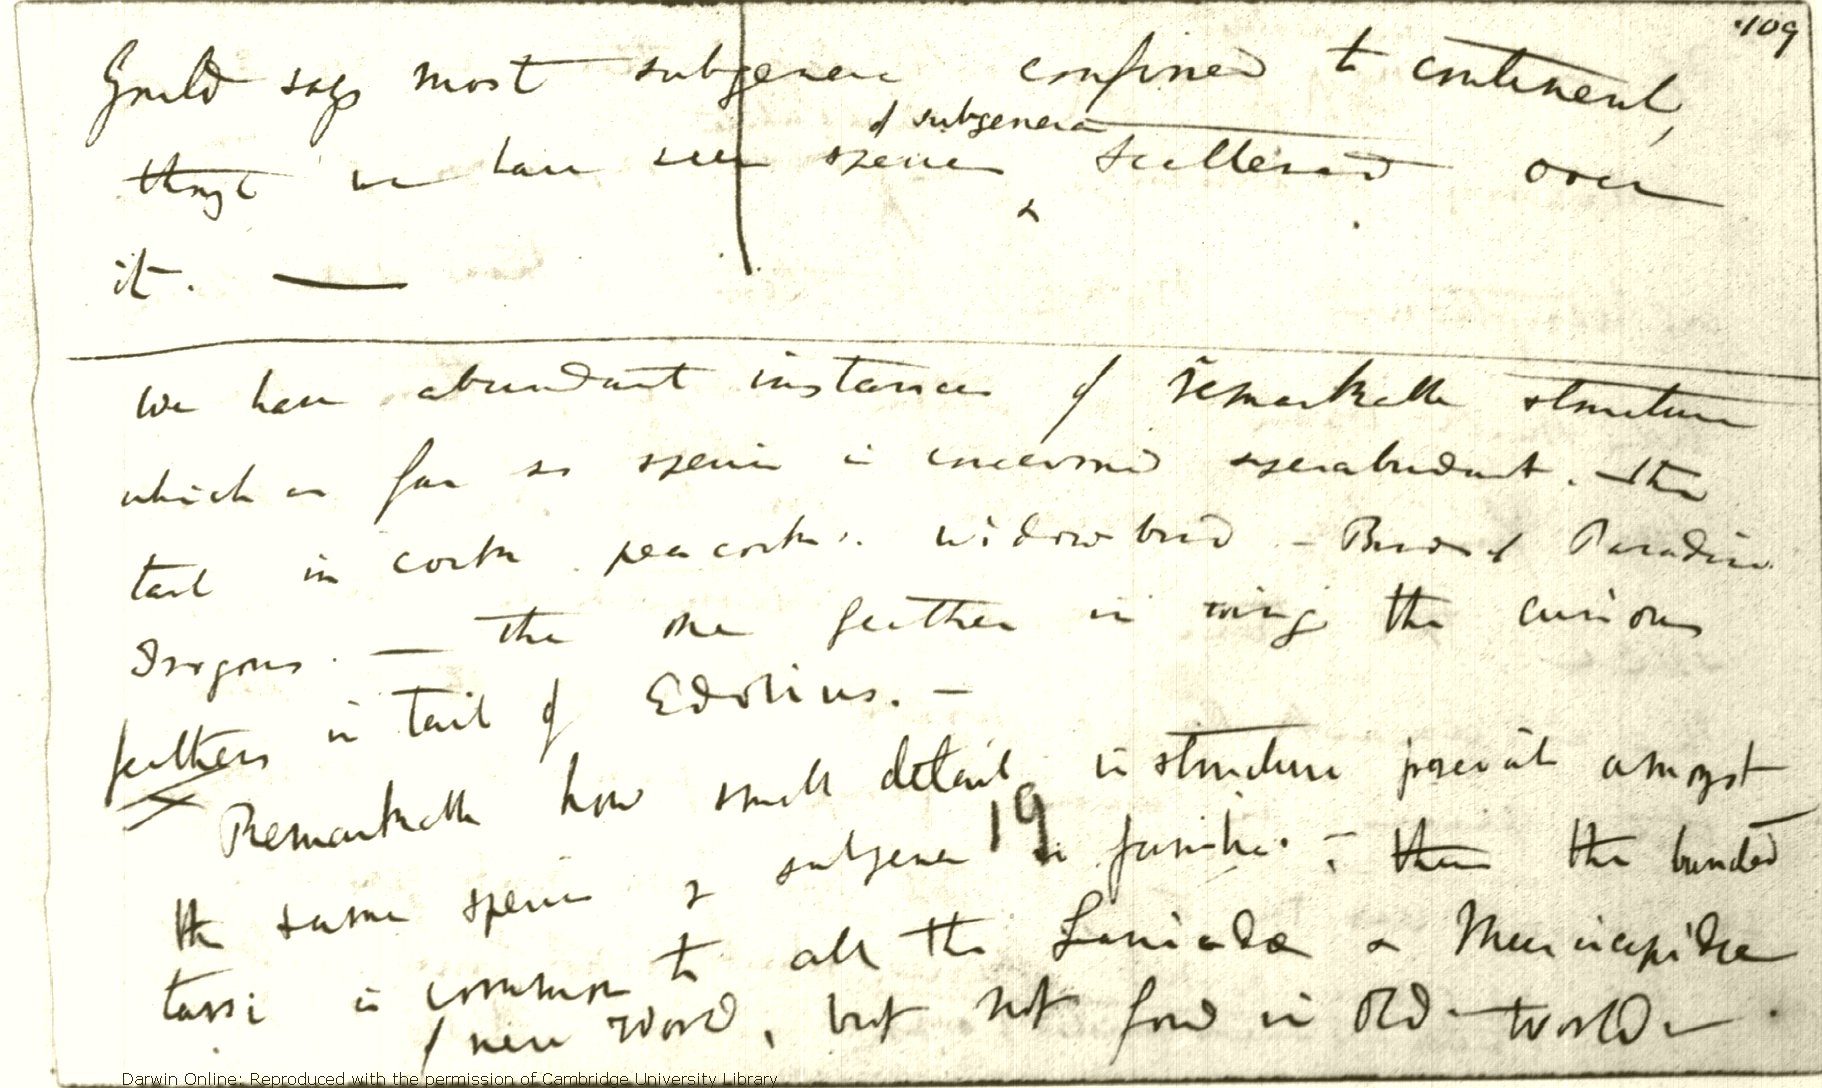 109
Gould says most subgenera confined to continent,
though we have seen species ^of subgenera scattered over
it. —
We have abundant instances of remarkable structure
which as far as species is concerned superabundant. — the
tail in cocks peacocks. widow bird — Birds of Paradise
Trogons. — the one feather in wing the curious
feathers in tail of Edolius. —
Remarkable how small detail in structure prevails amongst
the same species & subgenera in families. — the banded
19
tarsi is common to all the Laniadæ & Muscicapidæ
of new World, but not found in Old — World —
Darwin Online: Reproduced with the permission of Cambridge University Library